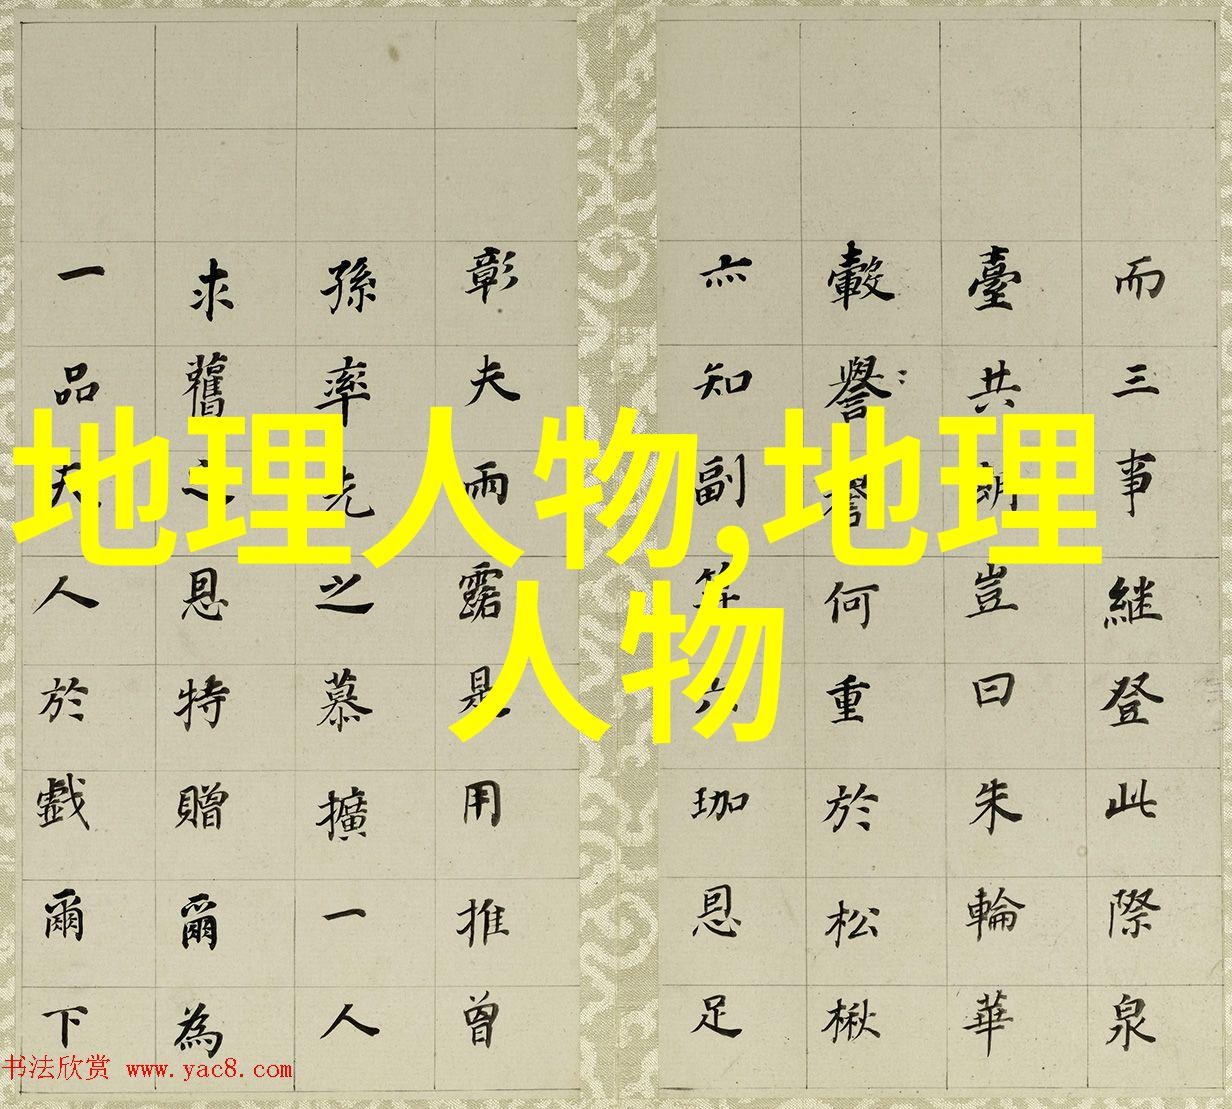 而三事継登此際泉
臺共豈曰朱輪華
轂譽譽何重於松楸
亦知副笄六珈恩足
彰夫雨露是用推曾
孫率先之慕擴一人
求舊之恩特贈爾為
一品夫人於戲爾下
地理人物,地理
人物
书法欣赏 www.yac8.com